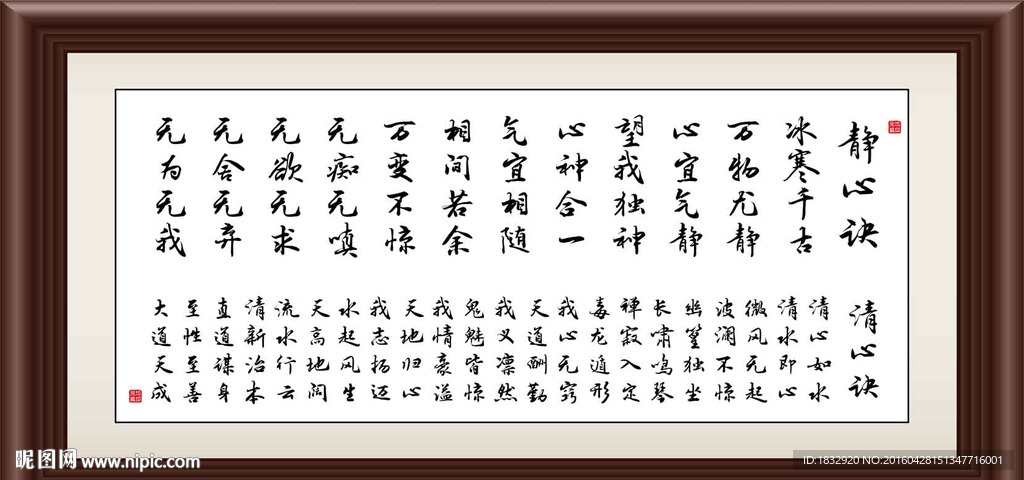 静心诀
冰寒千古
万物尤静
心宜气静
望我独神
心神合一
气宜相随
相间若余
万变不惊
无痴无嗔
无欲无求
无舍无弃
无为无我
清心诀
清心如水
清水即心
微风无起
波澜不惊
幽篁独坐
长啸鸣琴
禅寂入定
毒龙遁形
我心无窍
天道酬勤
我义凛然
鬼魅皆惊
我情豪溢
天地归心
我志扬迈
水起风生
天高地阔
流水行云
清新治本
直道谋身
至性至善
大道天成
昵图网 www.nipic.com
ID:1832920 NO:20160428151347716001